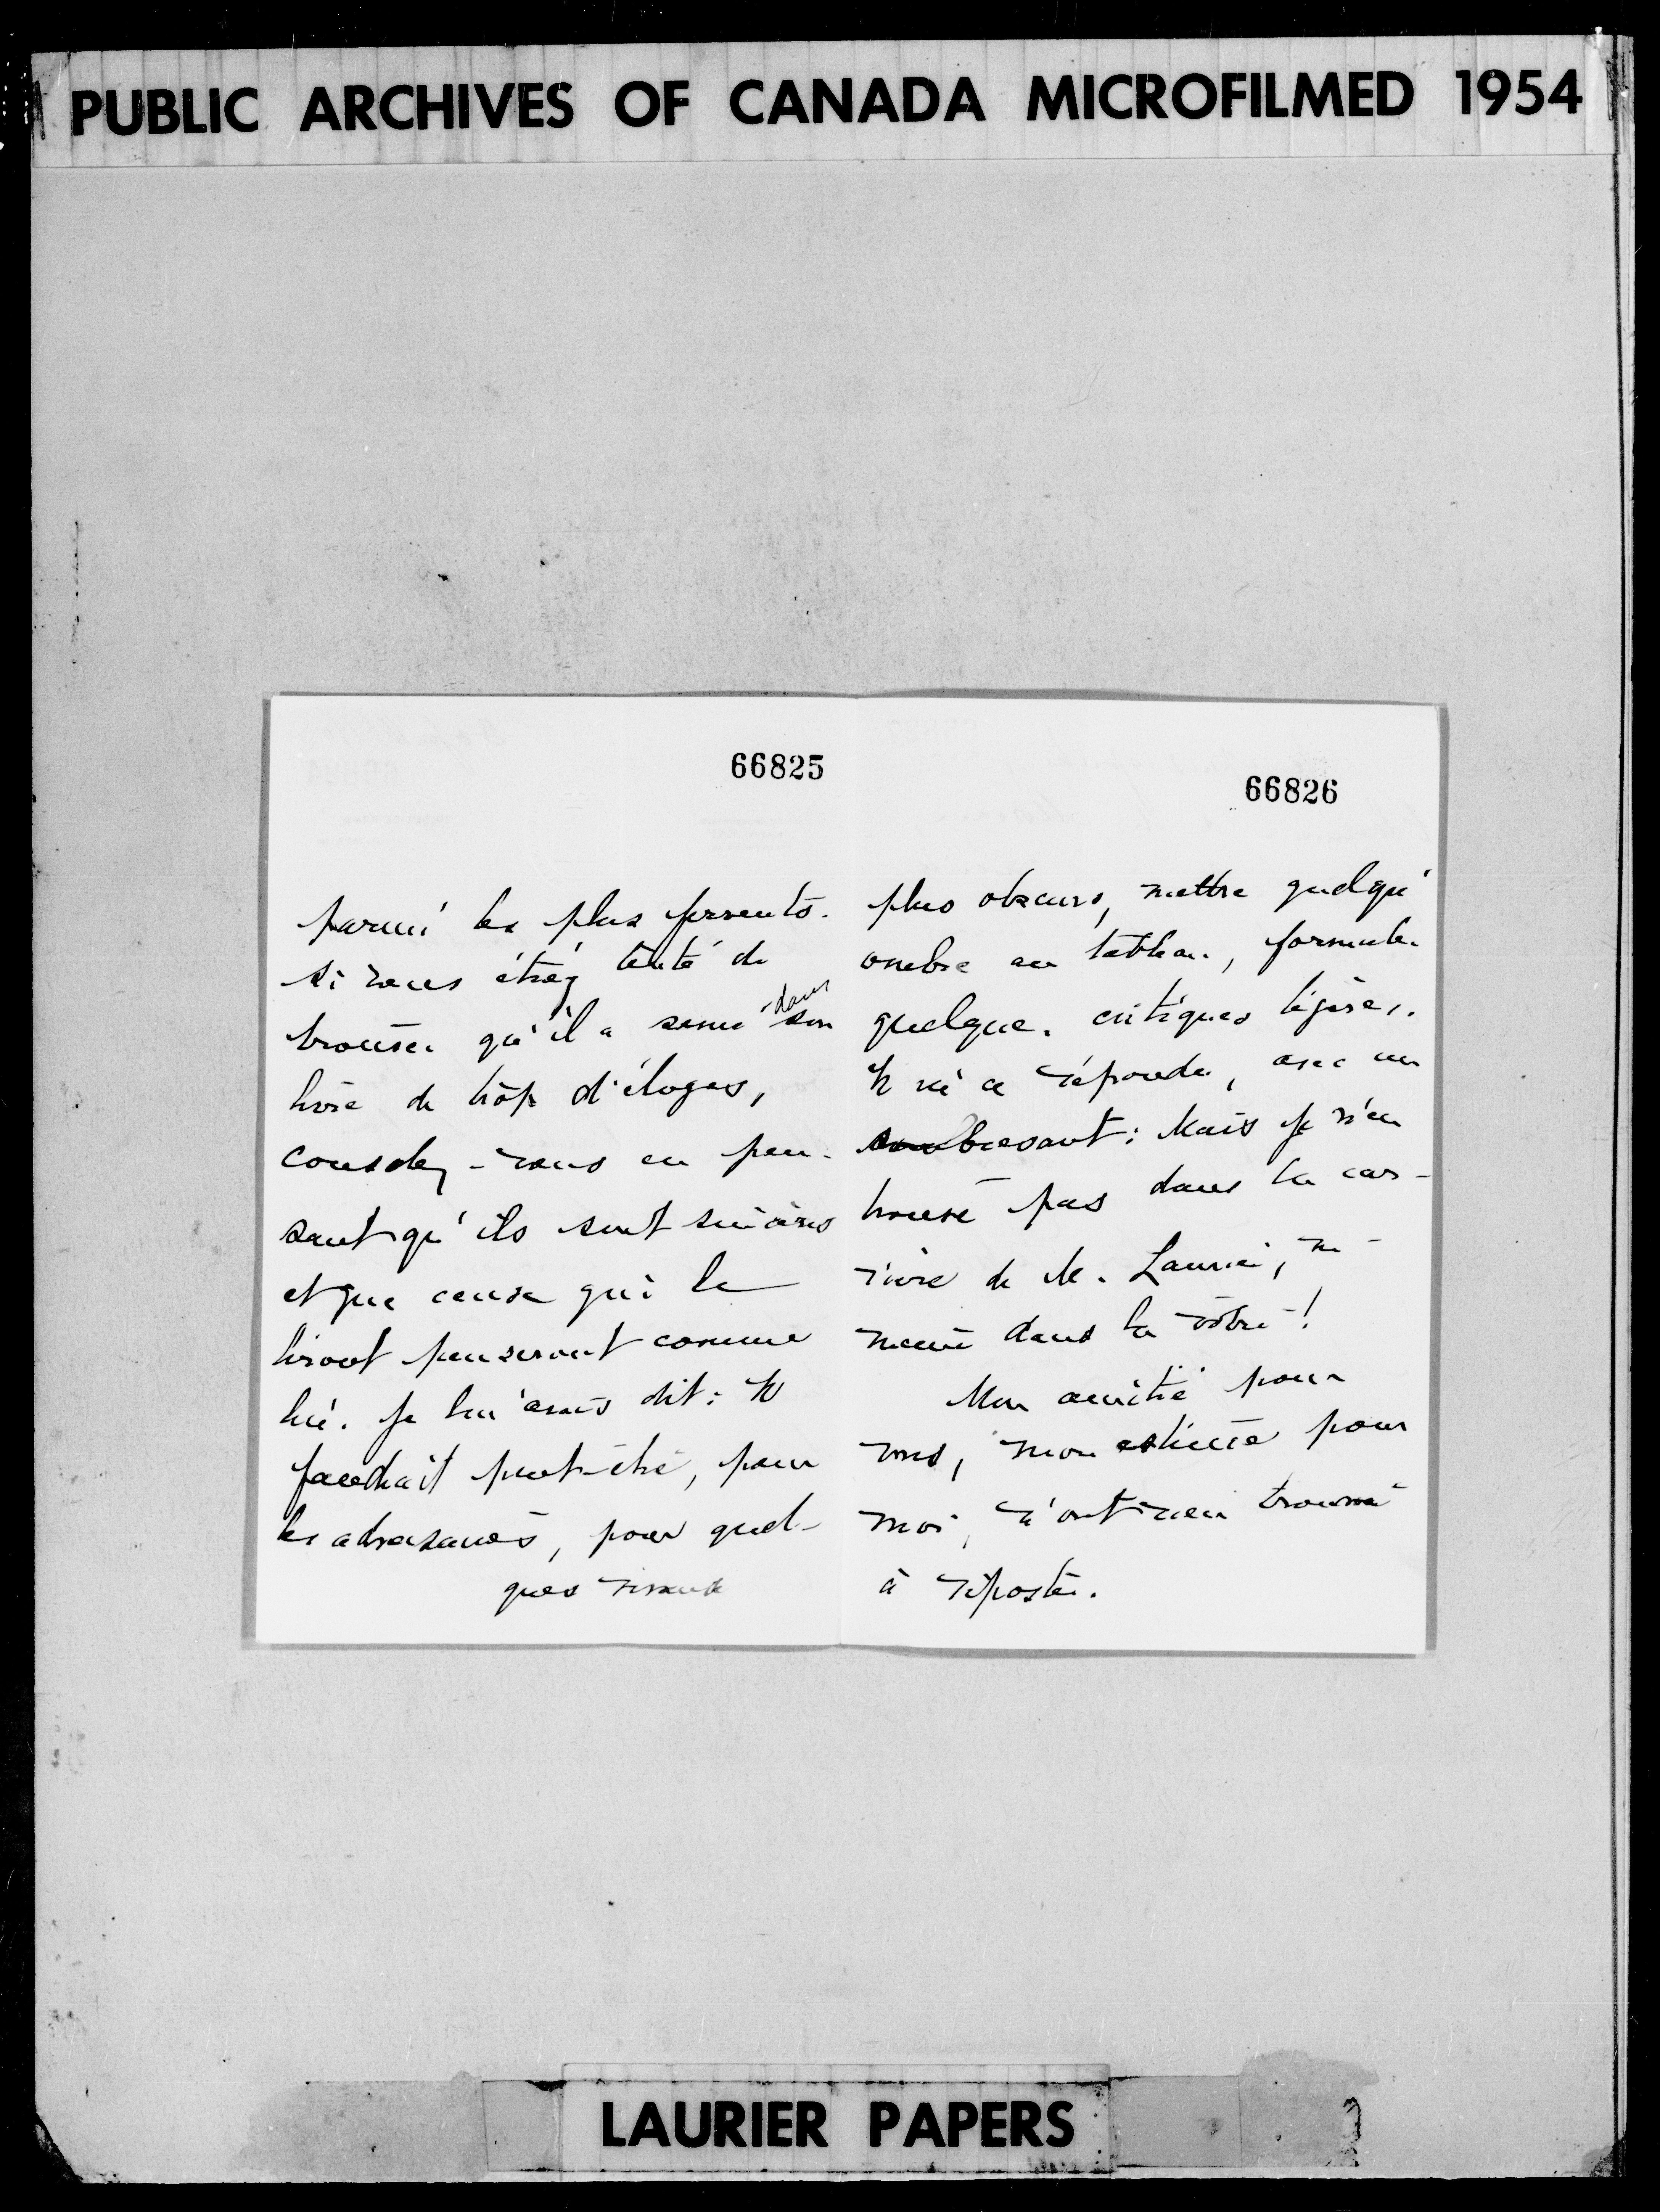 PUBLIC ARCHIVES OF CANADA MICROFILMED 1954
66825
parmi les plus fervents.
Si vous étiez tenté de
trouver qu'il a semé dans son
livre de trop d'éloges,
consolez-vous en pen-
sant qu'ils sont sincères
et que ceux qui le
liront penseront comme
lui. Je lui avais dit: Il
faudrait peut-être, pour
les adversaires, pour quel-
ques
66826
plus obscurs, mettre quelqu'
ombre au tableau, formuler
quelques critiques légères.
Il m'a répondu, avec un
: Mais je n'en
trouve pas dans la car-
rière de M. Laurier, ni
même dans la vôtre!
Mon amitié pour
vous, mon estime pour
moi, n'ont rien trouvé
à riposter.
LAURIER PAPERS